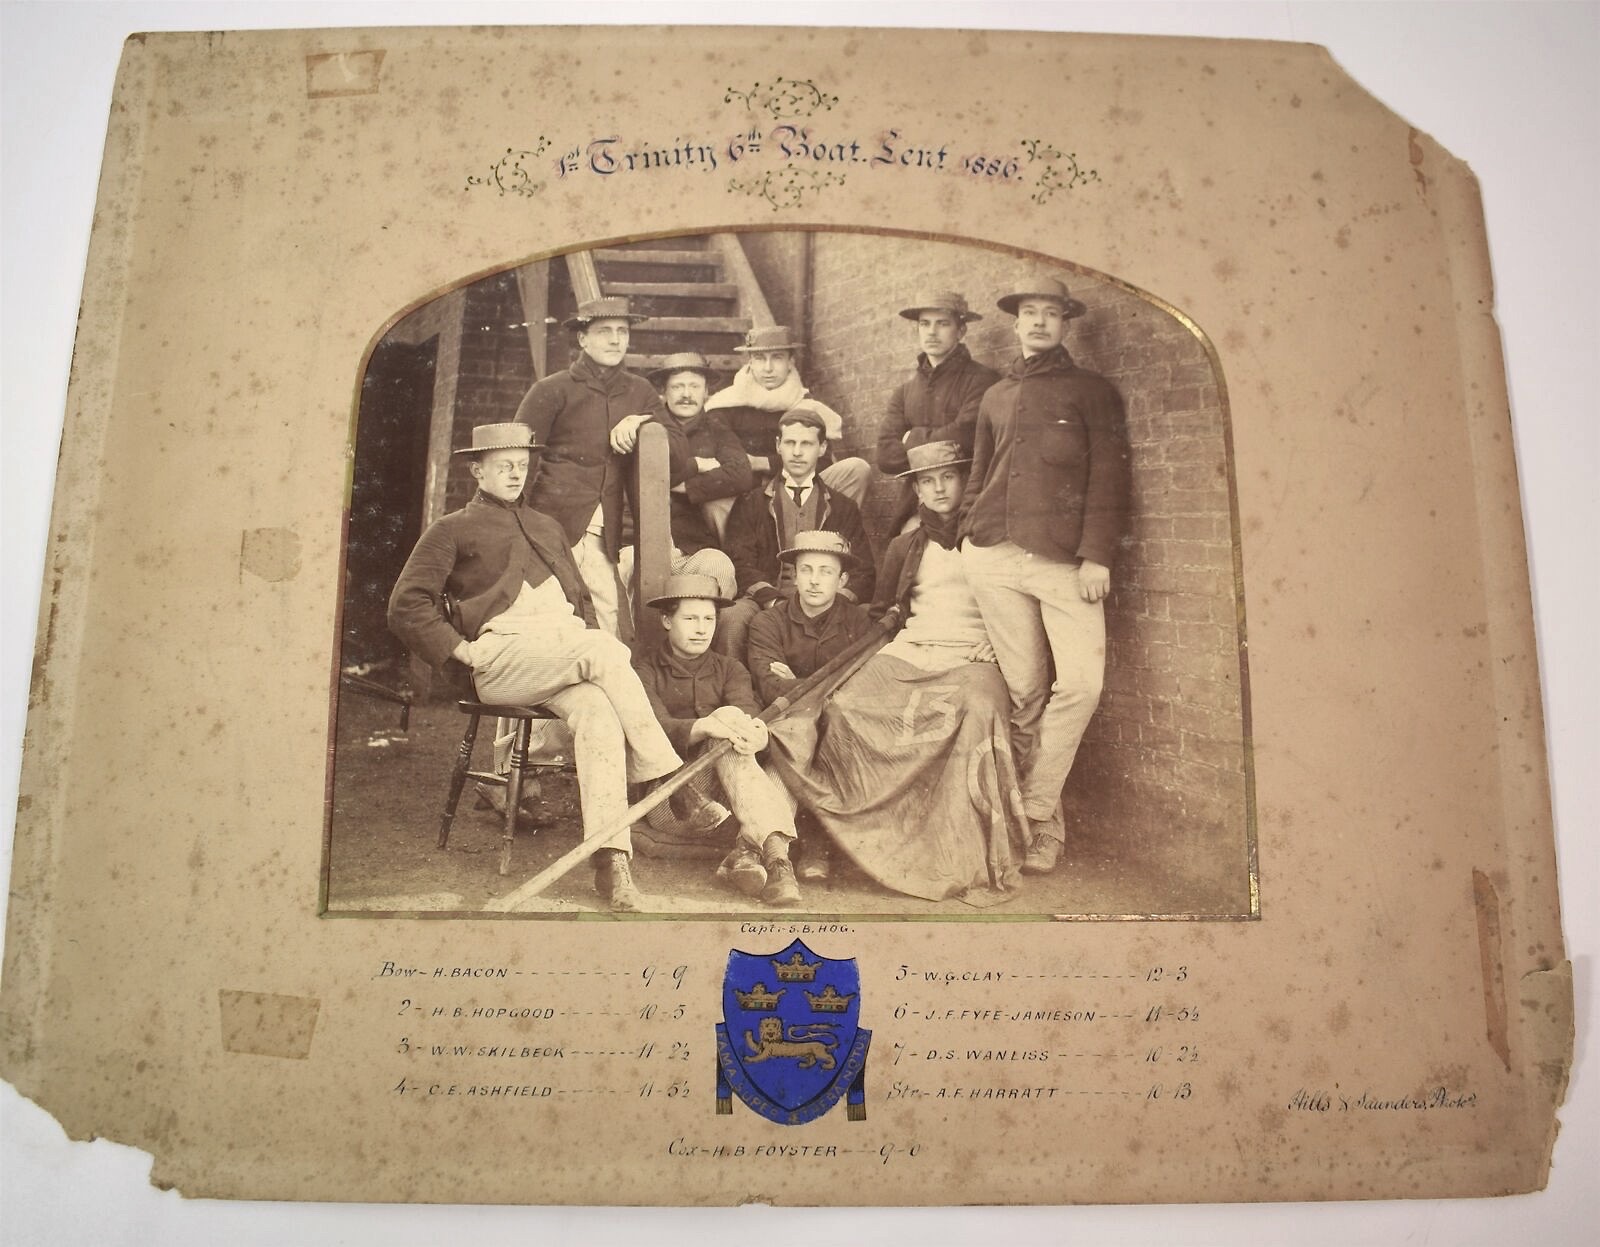 1st Trinity 6th Boat. Lent 1886.
B
C
Capt:- S.B. HOG.
Bow - H. BACON - - - - - - - - - 9-9
2 - H. B. HOPGOOD - - - - - - 10-5
3 - W. W. SKILBECK - - - - - - 11-2½
4 - C. E. ASHFIELD - - - - - - - 11-5½
5 - W. G. CLAY - - - - - - - - - - - 12-3
6 - J. F. FYFE-JAMIESON - - - 11-5½
7 - D. S. WANLISS - - - - - - 10-2½
Str - A. F. HARRATT - - - - - - - 10-13
Cox - H. B. FOYSTER - - - 9-0
FAMA SUPER ÆTHERA NOTUS
Hills & Saunders, Photo.